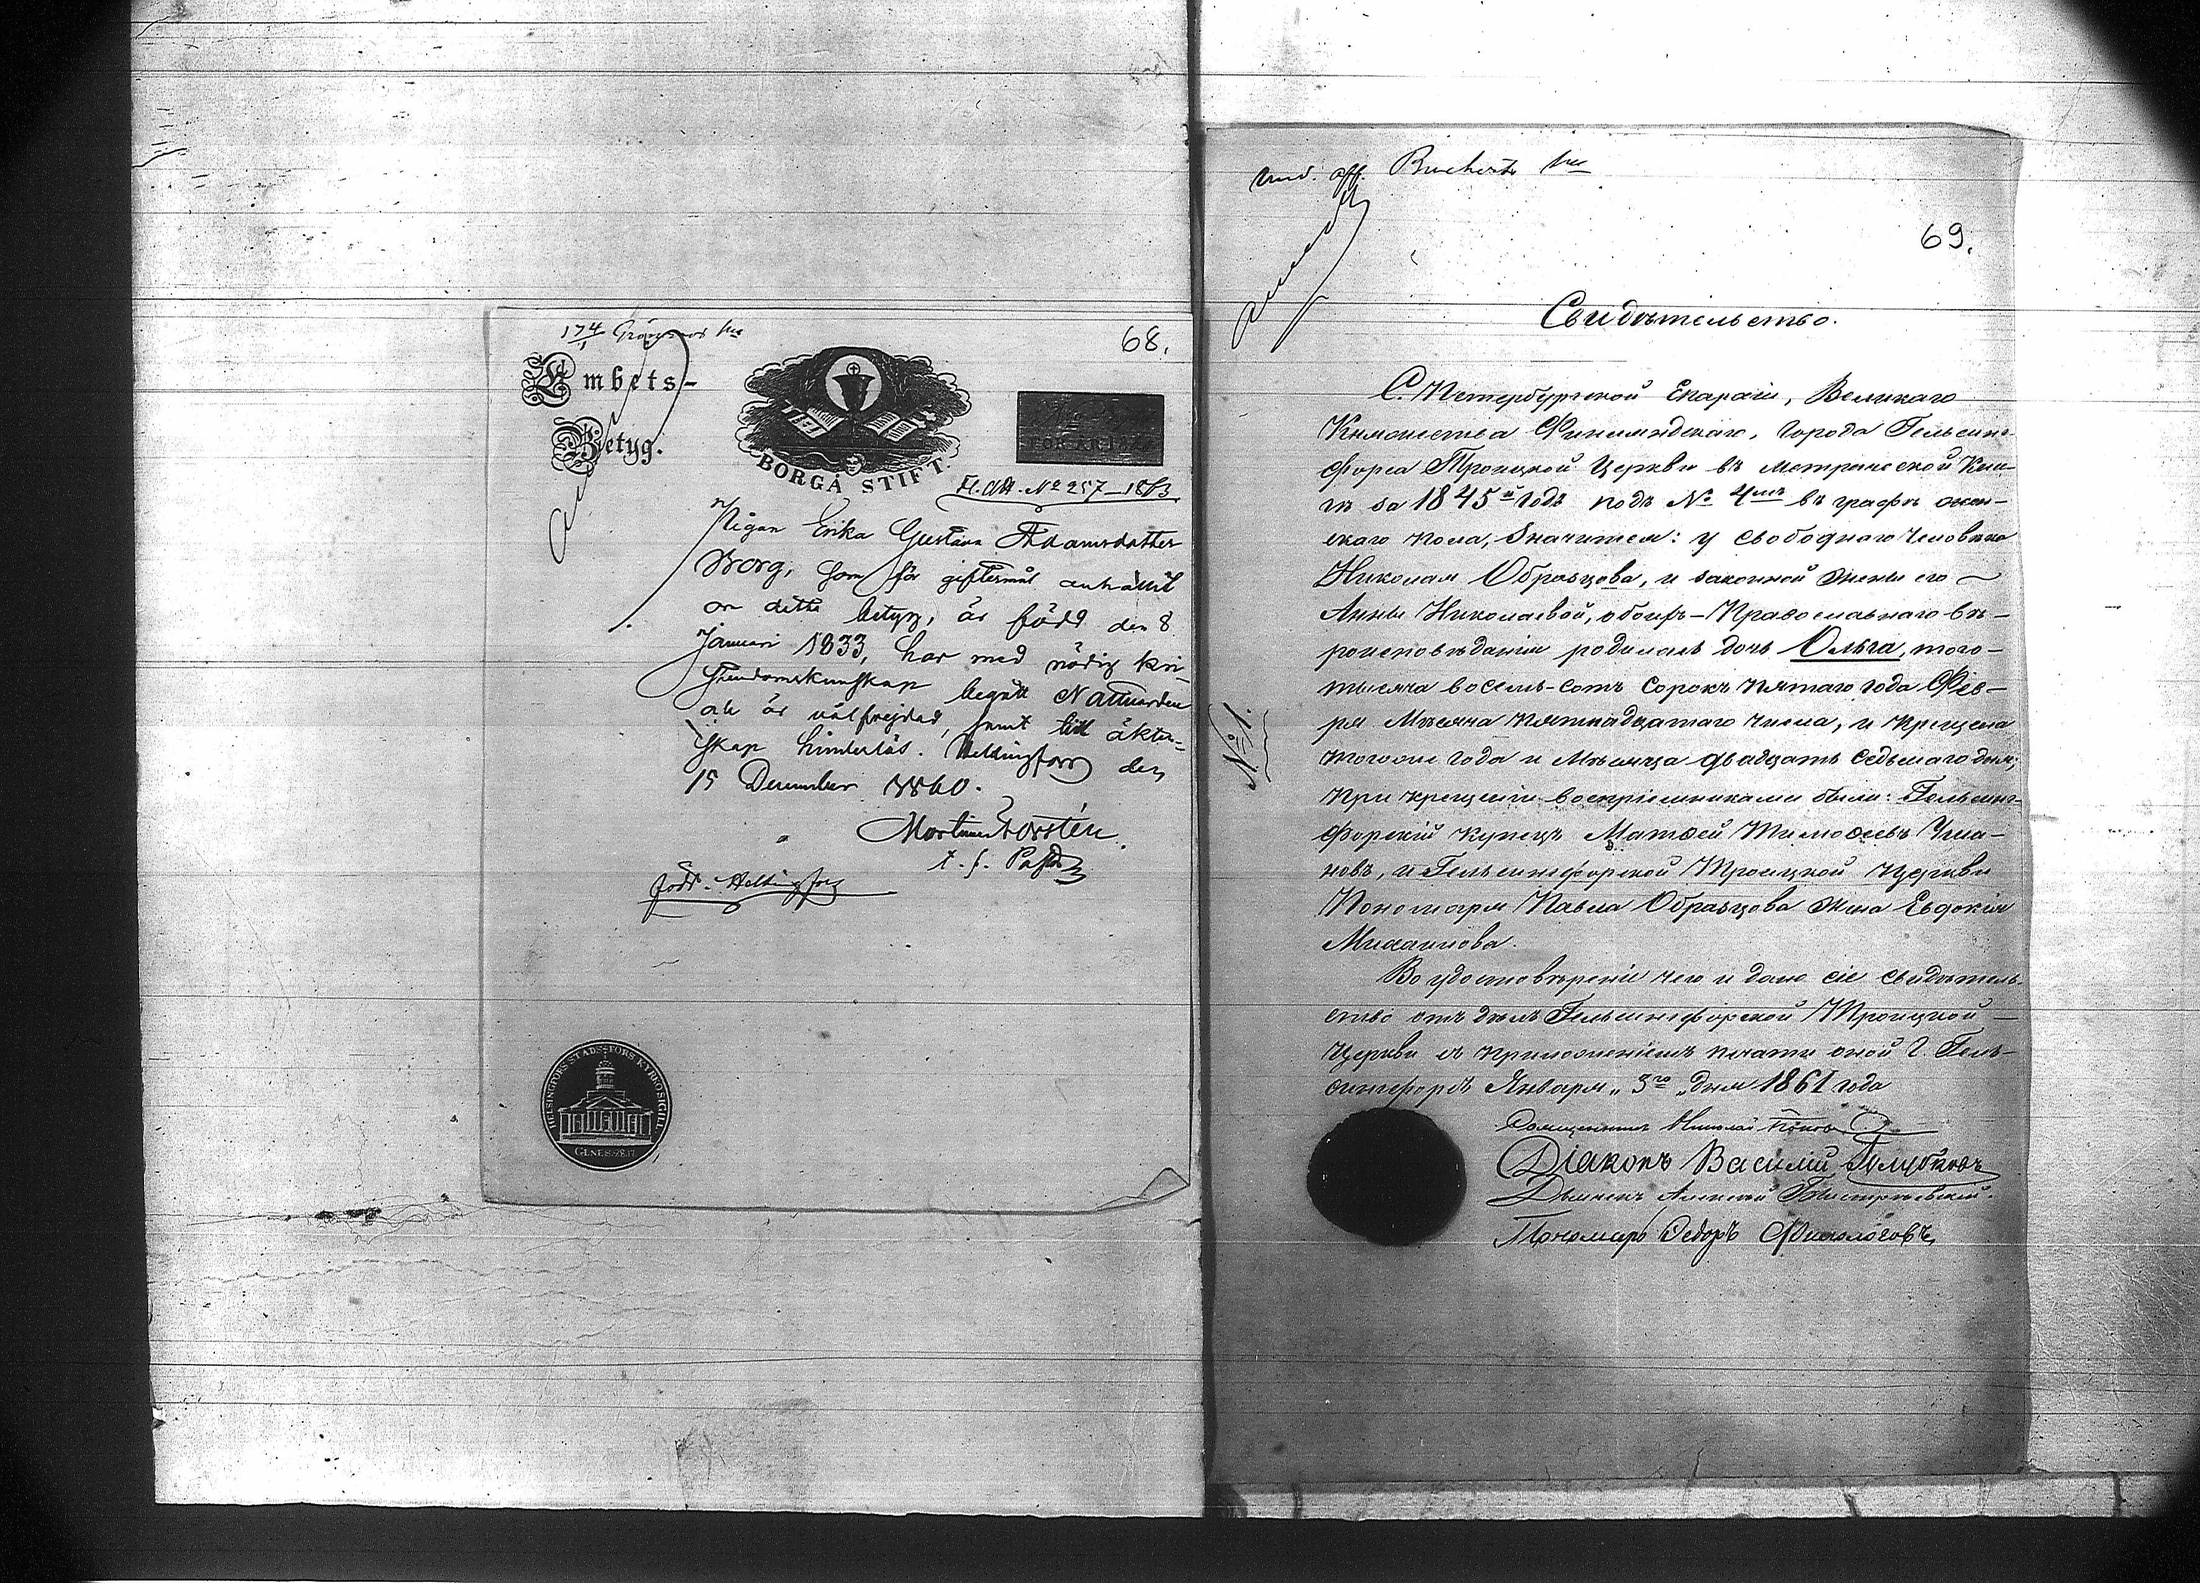 68.
Ambets-
Betyg.
BORGÅ STIFT.
H. Att. No 257–1863
Pigan Erika Gustava Adamsdotter
Borg, som för giftermål anhållit
om detta betyg, är född den 8
Januari 1833, har med nödig kri-
stendomskunskap begått Nattvarden
och är välfrejdad, samt till äkten-
skap hinderlös. Helsingfors den
15 December 1860.
t. f. Pastor
född i Helsingfors
HELSINGFORS STADS FÖRS. KYRKOSIGILL
GENES. 28.17.
Und. off. Bucherts
69.
Свидѣтельство.
С. Петербургской Епархіи, Великаго
Княжества Финляндскаго, города Гельсинг-
форса Троицкой Церкви въ метрической Кни-
гѣ за 1845й годъ подъ № 4мъ въ графѣ жен-
скаго пола, значится: у свободнаго человѣка
Николая Образцова, и законной жены его
Анны Николаевой, обоихъ Православнаго вѣ-
роисповѣданія родилась дочь Ольга, того-
тысяча восемь-сотъ сорокъ пятаго года Фев-
ря Мѣсяца пятнадцатаго числа, и крещена
тогоже года и Мѣсяца двадцать седьмаго дня;
при крещеніи воспріемниками были: Гельсинг-
форскій купецъ Матѳей Тимоѳеевъ Уша-
новъ, и Гельсингфорской Троицкой Церкви
Пономаря Павла Образцова жена Евдокія
Михаилова.
Во удостовѣреніе чего и дано сіе свидѣтель-
ство отъ Гельсингфорской Троицкой
Церкви съ приложеніемъ печати оной г. Гель-
сингфорсъ Января „3го„ дня 1861 года
№ 1.
Священникъ Николай Поповъ
Діаконъ Василій Голубковъ
Дьячекъ Алексей
Пономарь Ѳедоръ